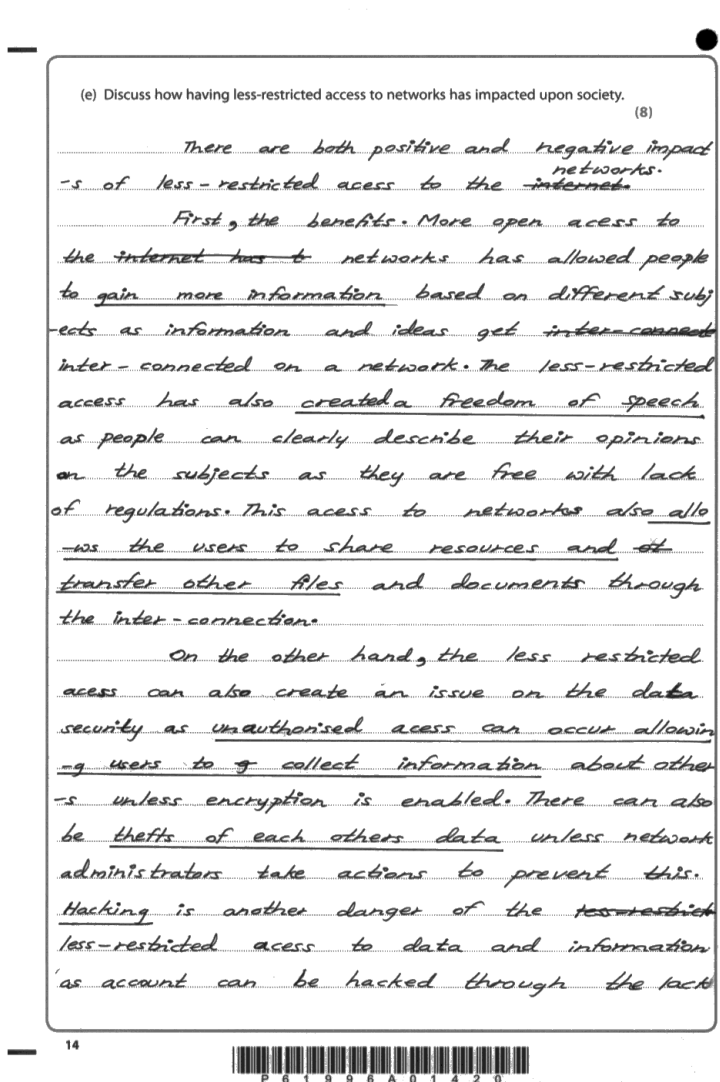 (e) Discuss how having less-restricted access to networks has impacted upon society.
(8)
There are both positive and negative impact
networks.
-s of less-restricted acess to the internet.
First, the benefits. More open acess to
the internet has t networks has allowed people
to gain more information based on different subj
-ects as information and ideas get inter-connect
inter-connected on a network. The less-restricted
access has also created a freedom of speech
as people can clearly describe their opinions
on the subjects as they are free with lack
of regulations. This acess to networks also allo
-ws the users to share resources and ot
transfer other files and documents through
the inter-connection.
On the other hand, the less restricted
acess can also create an issue on the data
security as unauthorised acess can occur allowin
-g users to g collect information about other
-s unless encryption is enabled. There can also
be thefts of each others data unless network
administrators take actions to prevent this.
Hacking is another danger of the less-restrict
less-restricted acess to data and information
as account can be hacked through the lack
14
P61996A01420